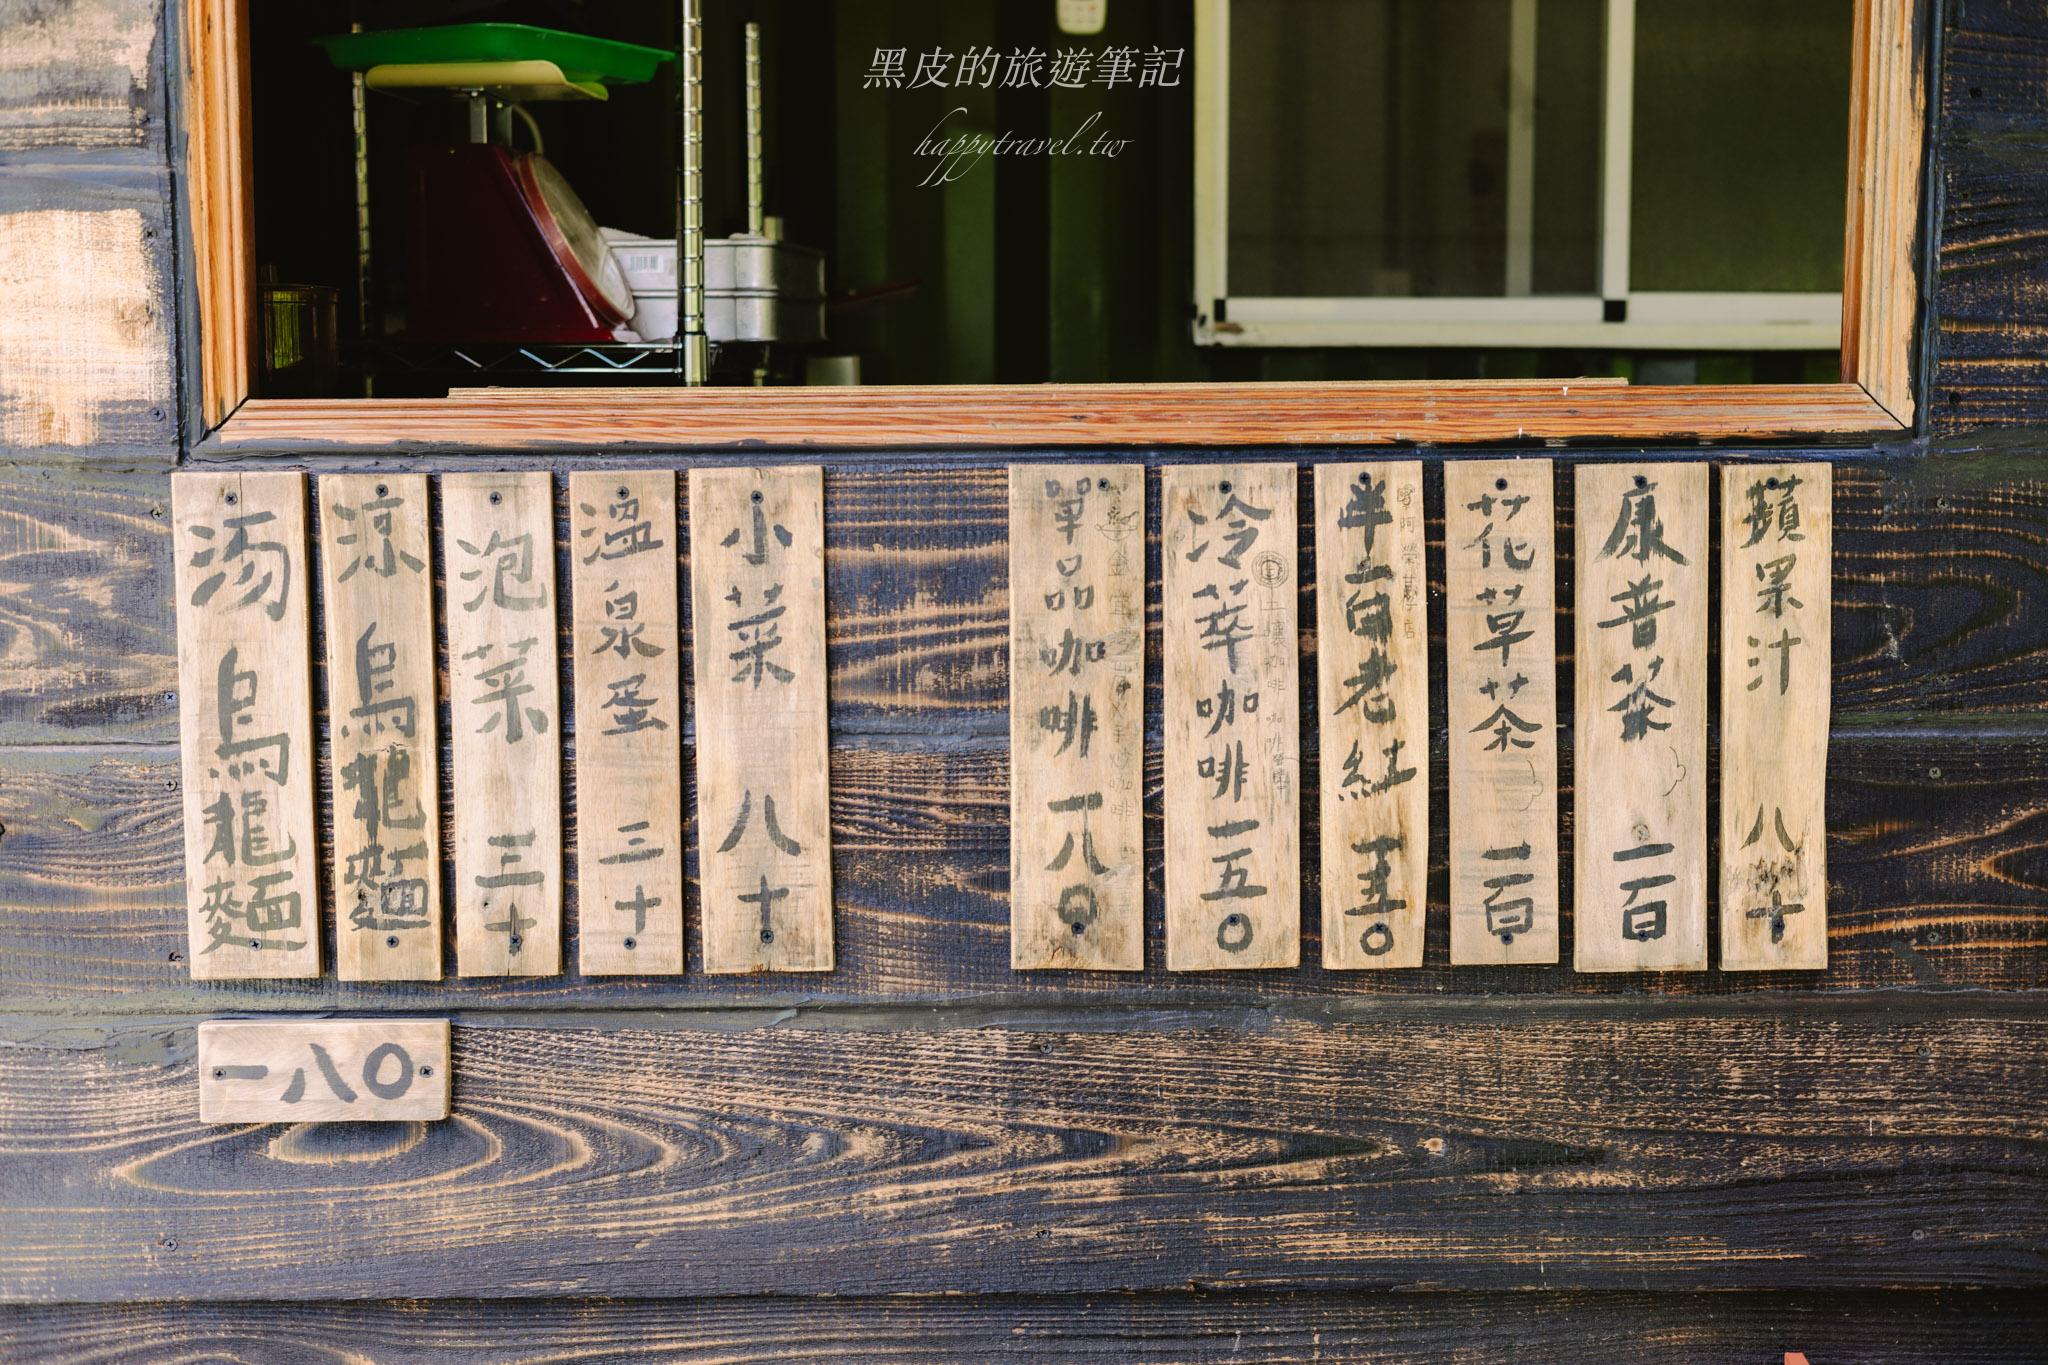 黑皮的旅遊筆記
happytravel.tw
湯烏龍麵
涼烏龍麵
泡菜 三十
溫泉蛋 三十
小菜 八十
單品咖啡 一八〇
冷萃咖啡 一五〇
半百老紅 一五〇
花草茶 一百
康普茶 一百
蘋果汁 八十
一八〇